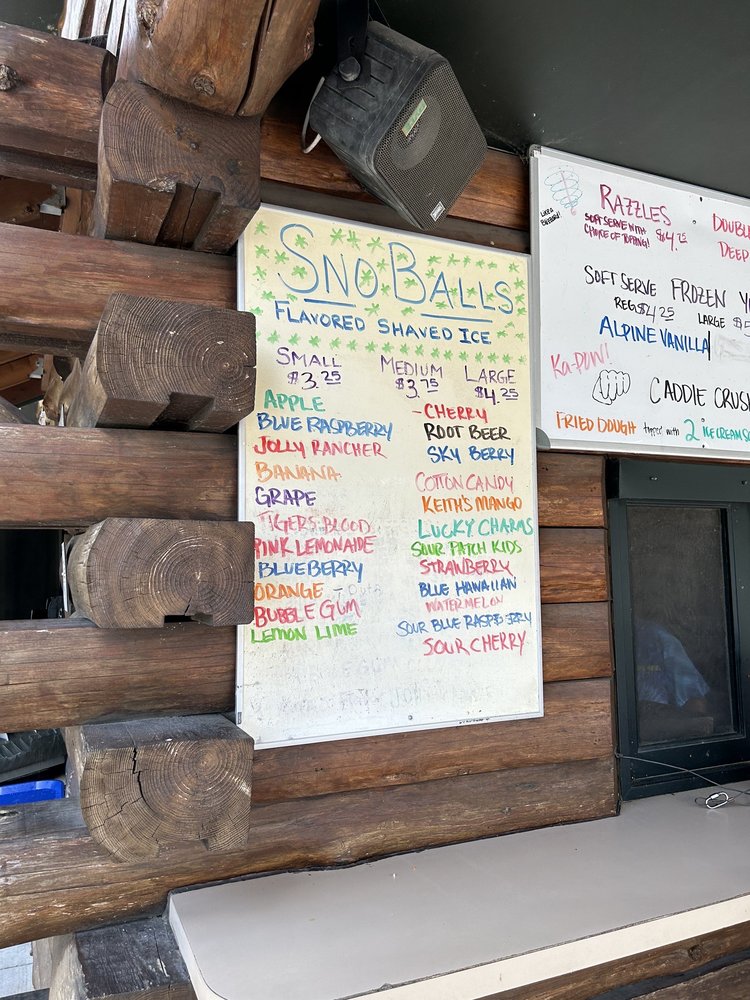 SNO BALLS
FLAVORED SHAVED ICE
SMALL MEDIUM LARGE
$3.25 $3.75 $4.25
APPLE
BLUE RASPBERRY
JOLLY RANCHER
BANANA
GRAPE
TIGERS BLOOD
PINK LEMONADE
BLUEBERRY
ORANGE
BUBBLE GUM
LEMON LIME
- CHERRY
ROOT BEER
SKY BERRY
COTTON CANDY
KEITH'S MANGO
LUCKY CHARMS
SOUR PATCH KIDS
STRAWBERRY
BLUE HAWAIIAN
WATERMELON
SOUR BLUE RASPBERRY
SOUR CHERRY
RAZZLES
SOFT SERVE WITH
CHOICE OF TOPPING! $4.75
DOUBL
DEEP
SOFT SERVE FROZEN
REG $4.25 LARGE
ALPINE VANILLA
KA-POW!
CADDIE CRUSH
FRIED DOUGH topped with 2 ICE CREAM